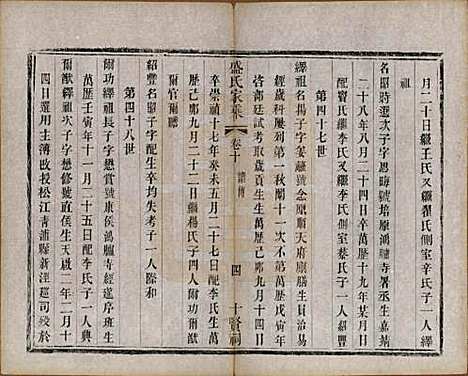 月二十日繼王氏又繼翟氏側室辛氏子一人繹
祖
名臨將選次子字思誨號培原鴻臚寺署丞生嘉靖
二十八年八月二十四日卒萬歷十九年某月日
配竇氏繼李氏又繼氏側室蔡氏子一人紹豐
第四十七世
繹祖名揚子字姜離號念原順天府廩膳生員治易
經歲科屢列第一秋闈十一次不第萬歷戊寅年
啓部廷試考取歲貢生生萬歷己卯九月十四日
盛氏家乘
卷十
四
十賢祠
卒崇禎十七年癸未五月二十七日配李氏生萬
歷己卯九月二十二日繼楊氏子二人爾功爾猷
爾官爾聽
紹豐名臨子字配生卒均失考子一人際和
第四十八世
爾功繹祖長子字懋賞號東侯鴻臚寺經遂序班生
萬歷壬寅年十一月二十五日配李氏子一人興
爾猷繹祖次子字懋方號直侯生天啟二年二月十
四日選用主簿改授松江青浦縣新涇巡司歿於